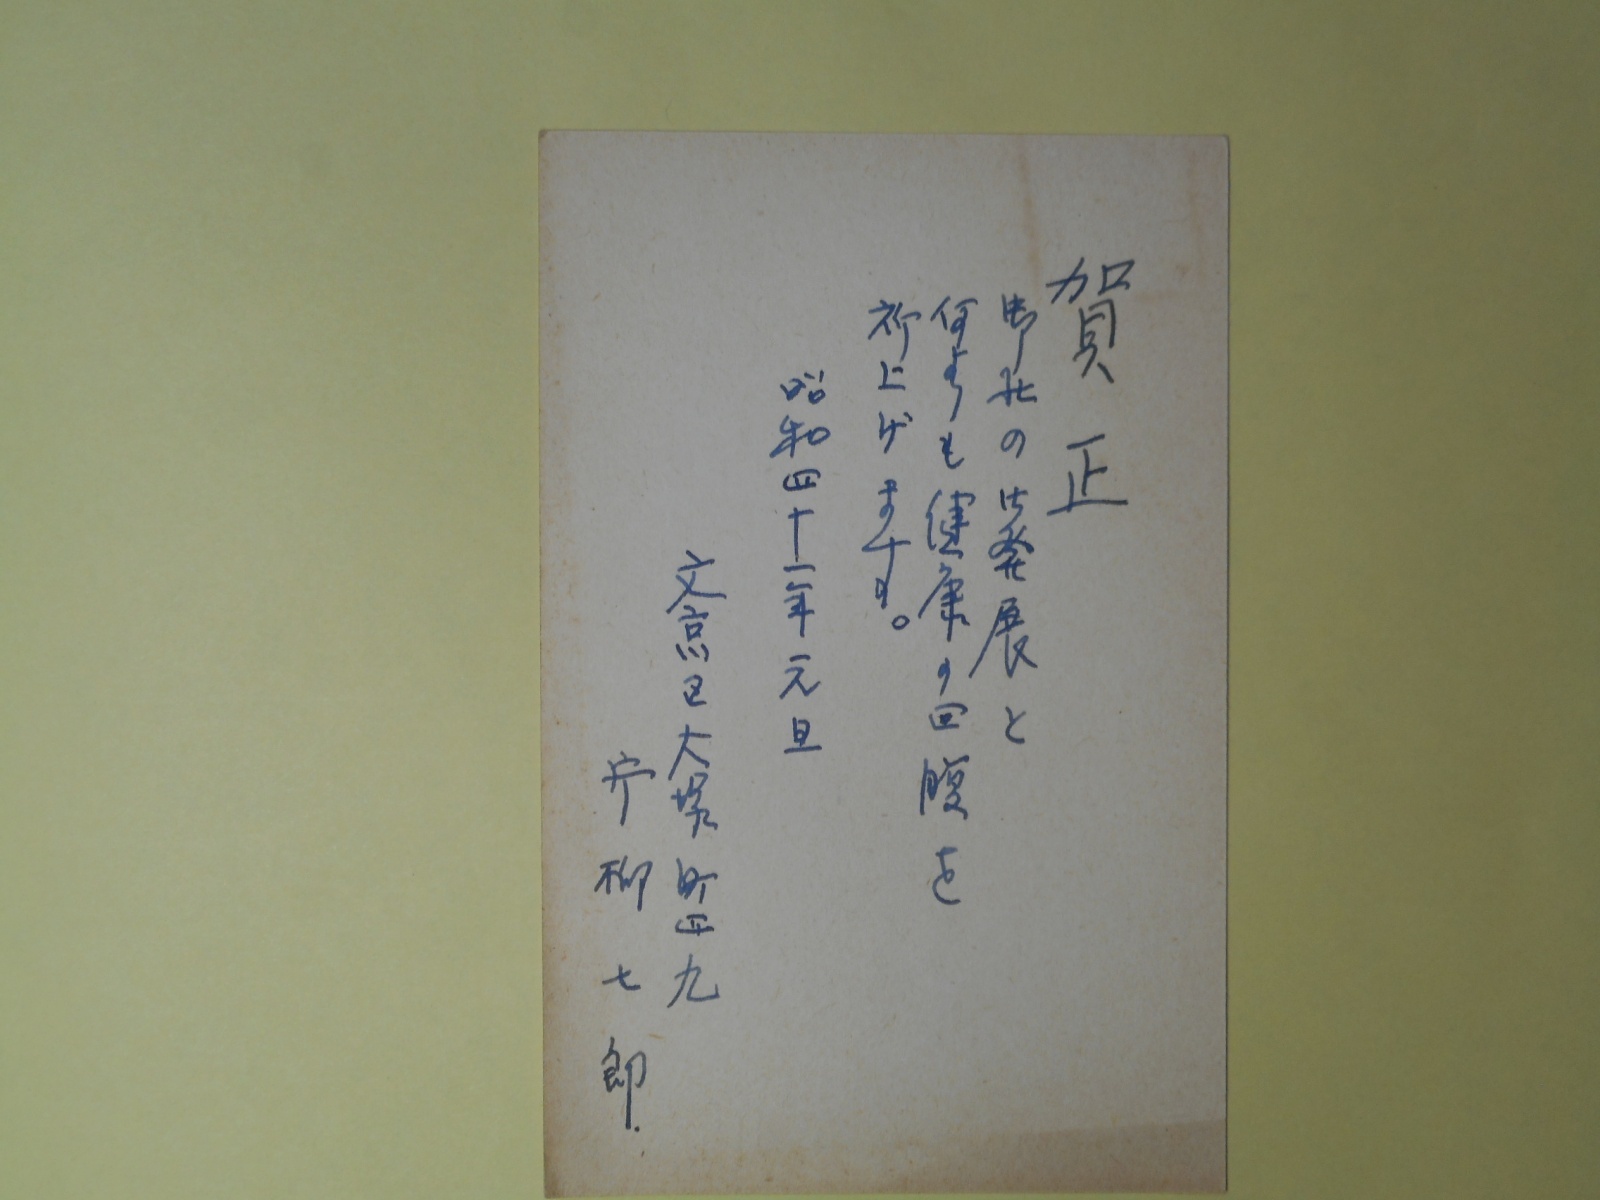 賀正
御社の御発展と
何よりも健康の回腹を
祈上げます。
昭和四十一年元旦
文京区大塚町四九
宁柳七郎